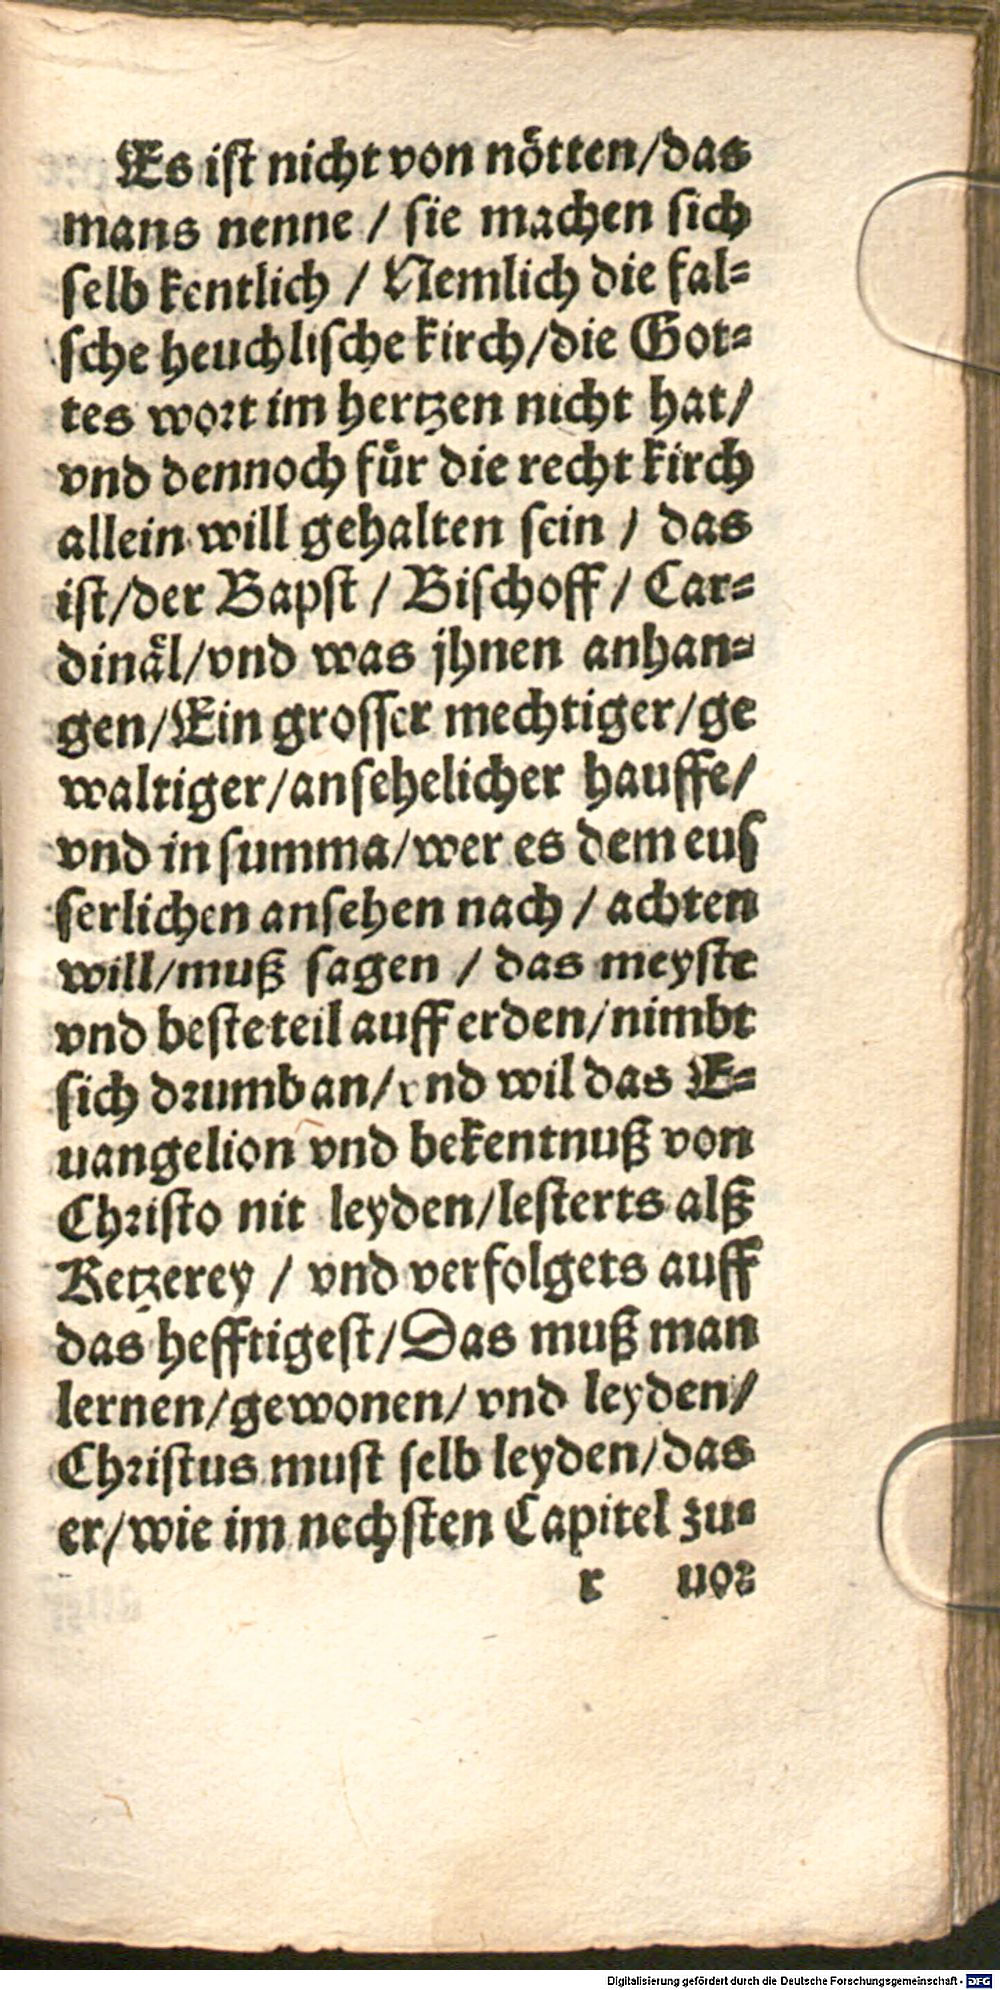 Es iſt nicht von noͤtten/das
mans nenne / ſie machen ſich
ſelb kentlich / Nemlich die fal⸗
ſche heuchliſche kirch/die Got⸗
tes wort im hertzen nicht hat/
vnd dennoch fuͤr die recht kirch
allein will gehalten ſein / das
iſt/der Bapſt / Biſchoff / Car⸗
dinaͤl/vnd was jhnen anhan⸗
gen/Ein groſſer mechtiger/ge
waltiger/anſehelicher hauffe/
vnd in ſumma/wer es dem euſ
ſerlichen anſehen nach / achten
will/muß ſagen / das meyſte
vnd beſte teil auff erden/nimbt
ſich drumb an/vnd wil das E⸗
uangelion vnd bekentnuß von
Chriſto nit leyden/leſterts alß
Ketzerey / vnd verfolgets auff
das hefftigeſt/Das muß man
lernen/gewonen/vnd leyden/
Chriſtus muſt ſelb leyden/das
er/wie im nechſten Capitel zu⸗
r uor
Digitalisierung gefördert durch die Deutsche Forschungsgemeinschaft - DFG